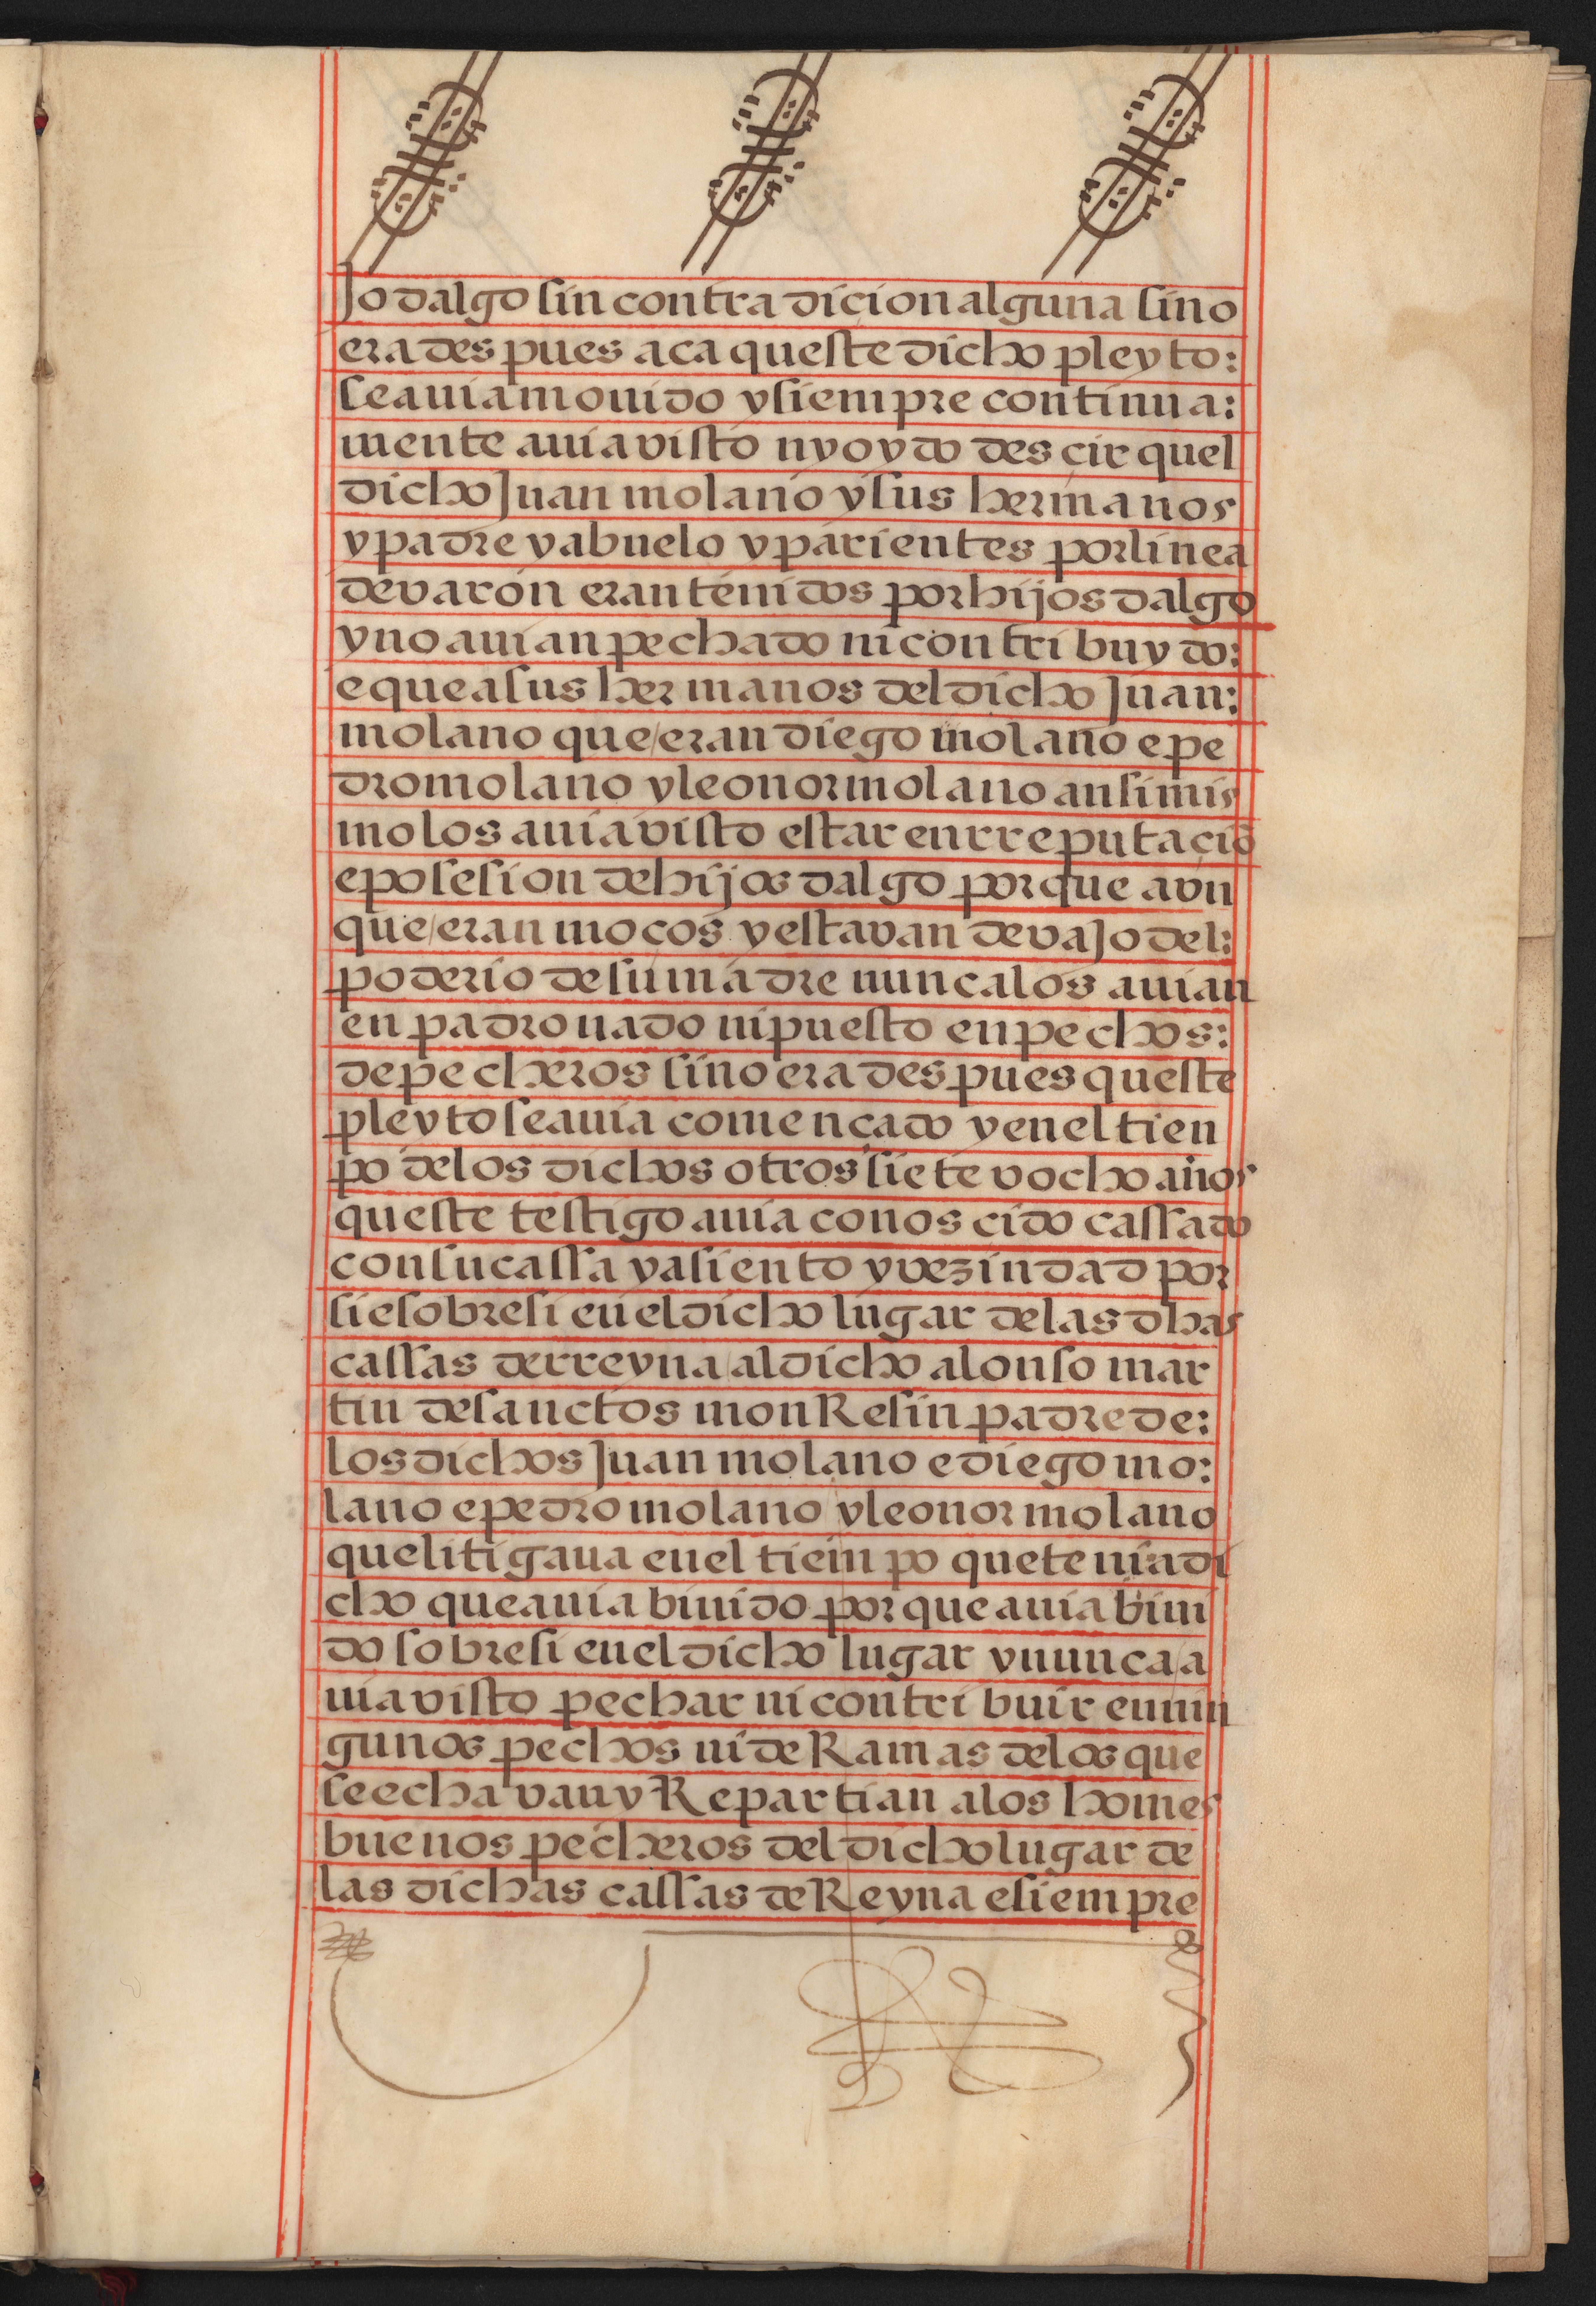 jo dalgo sin contradicion alguna sino
era despues aca queste dicho pleyto:
se auia mouido y siempre continua:
mente auia visto ny oydo descir quel
dicho Juan molano y sus hermanos
y padre y abuelo y parientes por linea
de varon eran tenidos por hijos dalgo
y no auian pechado ni contribuydo:
e que a sus hermanos del dicho Juan:
molano que/eran diego molano e pe
dro molano y leonor molano ansimis
mo los auia visto estar en rreputaciõ
e posesion de hijos dalgo porque avn
que/eran moços y estavan devajo del:
poderio de su madre nunca los auian
enpadronado ni puesto en pechos:
de pecheros sino era despues queste
pleyto se auia començado y en el tien
po de los dichos otros siete v ocho años
queste testigo auia conoscido cassado
con su cassa y asiento y vezindad por
si e sobre si en el dicho lugar de las dhas
cassas de rreyna/al dicho alonso mar
tin de sanctos monResin padre de:
los dichos Juan molano e diego mo:
lano e pedro molano y leonor molano
que litigaua en el tiempo que tenia di
cho que auia biuido porque auia biui
do sobre si en el dicho lugar y nunca/a
uia visto pechar ni contribuir en nin
gunos pechos ni deRamas de los que
se echavan y Repartian a los homes
buenos pecheros del dicho lugar de
las dichas cassas de Reyna e siempre